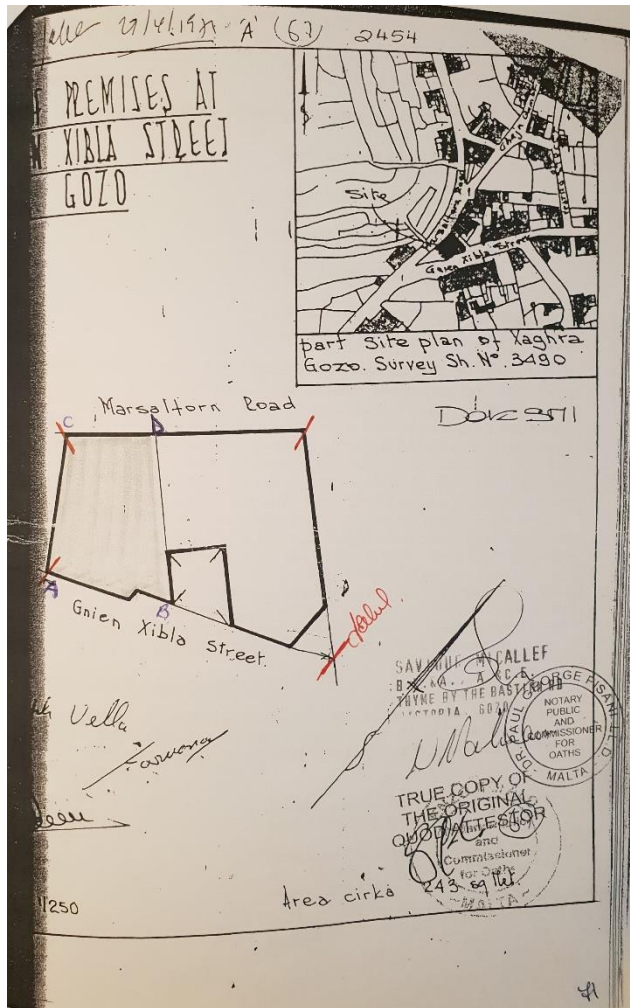 27/4/1971 "A" (67) 2454
PREMISES AT
XIBLA STREET
GOZO
Site
Gnien Xibla Street
part Site plan of Xaghra
Gozo. Survey Sh. Nº. 3490
Marsalforn Road
C
D
A
B
Gnien Xibla Street.
Vella
SAVIOUR MICALLEF
B. & A., A. & C. E.
THYME BY THE BASTION RD
VICTORIA, GOZO
DR. PAUL GEORGE PISANI LL.D.
NOTARY
PUBLIC
AND
COMMISSIONER
FOR
OATHS
MALTA
TRUE COPY OF
THE ORIGINAL
QUOD ATTESTOR
and
Commissioner
for Oaths
MALTA
Area cirka 243 sq Met.
/250